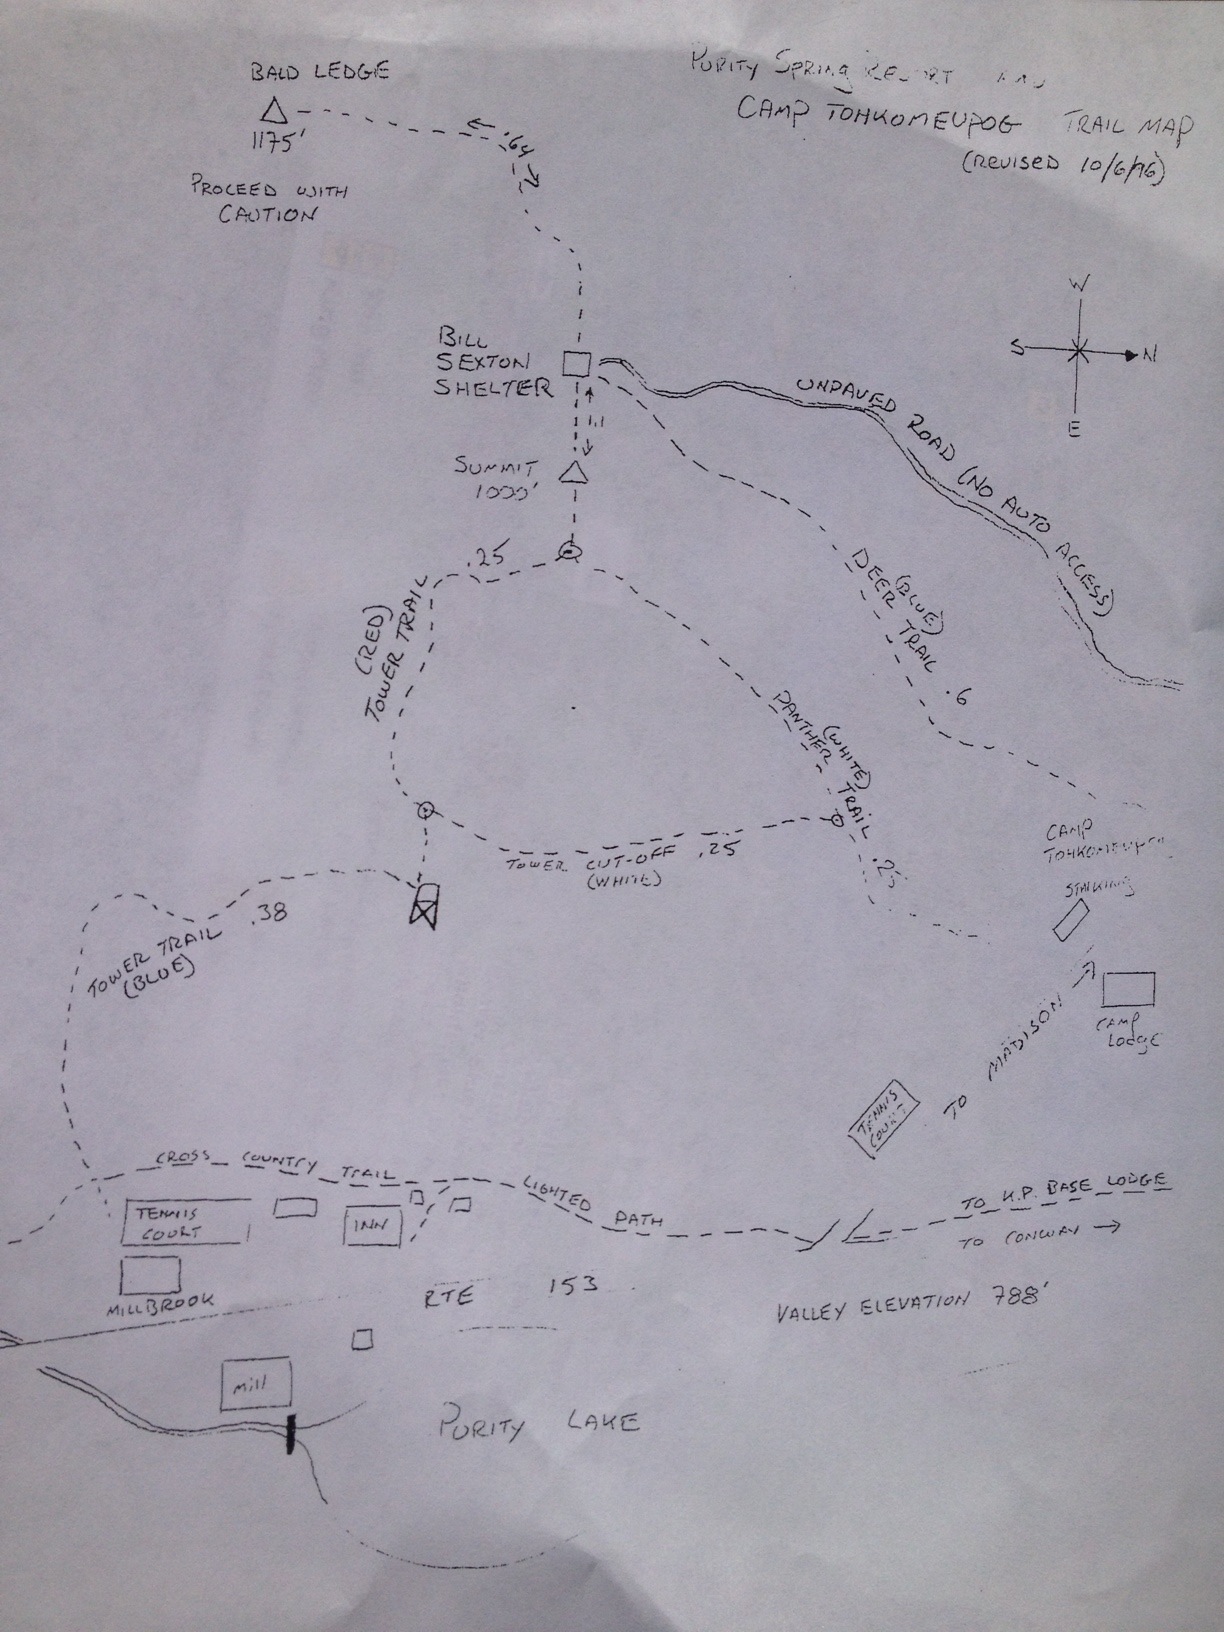 PURITY SPRING RESORT AND
CAMP TOHKOMEUPOG TRAIL MAP
(REVISED 10/6/96)
BALD LEDGE
1175'
PROCEED WITH
CAUTION
.64
W
S N
E
BILL
SEXTON
SHELTER
.1
UNPAVED ROAD (NO AUTO ACCESS)
SUMMIT
1000'
.25
(RED)
TOWER TRAIL
(BLUE)
DEER TRAIL .6
(WHITE)
PANTHER TRAIL
.25
TOWER CUT-OFF .25
(WHITE)
CAMP
TOHKOMEUPOG
CAMP
LODGE
.38
TOWER TRAIL
(BLUE)
TO MADISON
TENNIS
COURT
CROSS COUNTRY TRAIL
LIGHTED PATH
TO K.P. BASE LODGE
TO CONWAY
TENNIS
COURT
INN
MILLBROOK
RTE 153
VALLEY ELEVATION 788'
Mill
PURITY LAKE